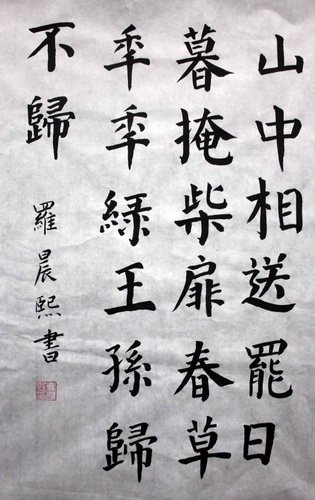 山中相送罷日
暮掩柴扉春草
年年綠王孫歸
不歸
羅晨熙書